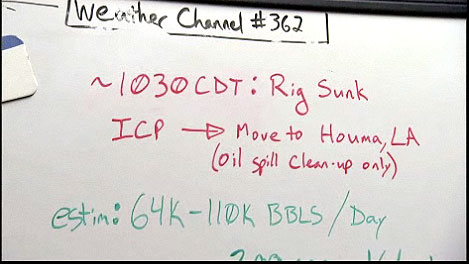 Weather Channel #362
~1030 CDT: Rig Sunk
ICP → Move to Houma, LA
(oil spill clean-up only)
estim: 64K-110K BBLS/Day